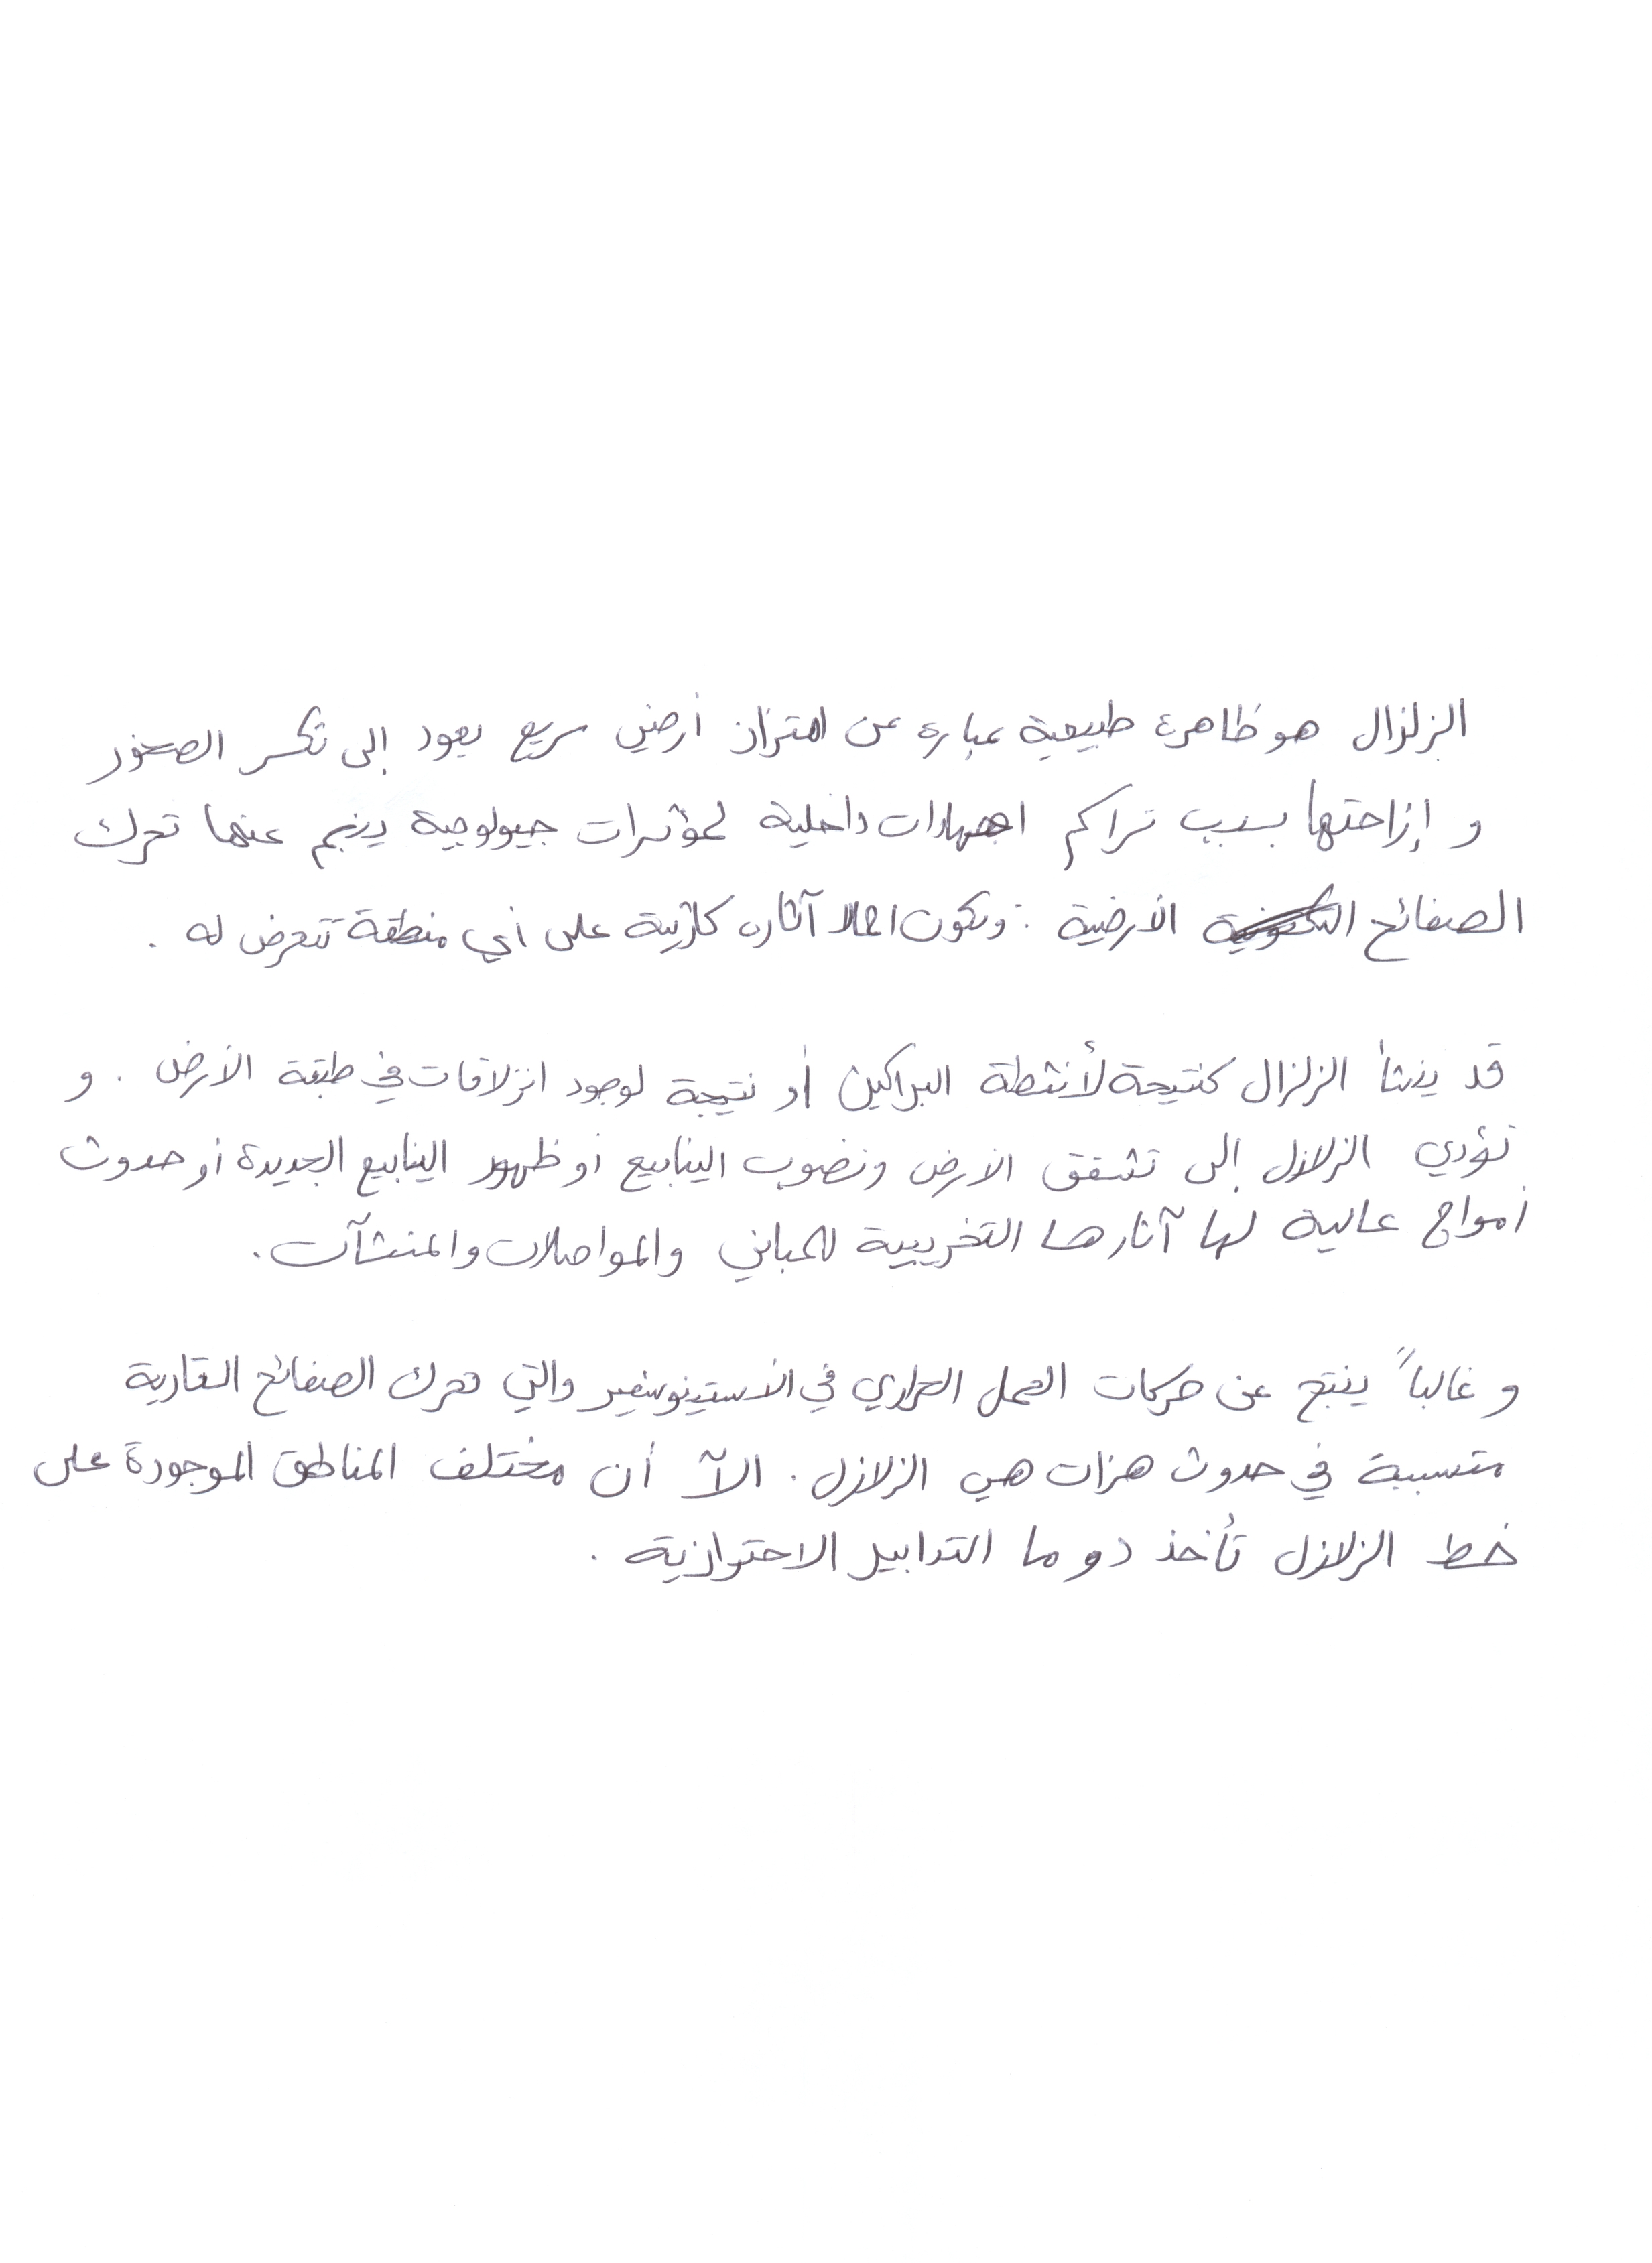 الزلزال هو ظاهرة طبيعية عبارة عن اهتزاز أرضي سريع يعود إلى تكسر الصخور
و إزاحتها بسبب تراكم اجهادات داخلية لمؤثرات جيولوجية ينجم عنها تحرك
الصفائح الأرضية . وتكون آثاره كارثية على أي منطقة تتعرض له .
قد ينشأ الزلزال كنتيجة لأنشطة البراكين أو نتيجة لوجود انزلاقات في طبقة الأرض . و
تؤدي الزلازل إلى تشقق الأرض ونضوب الينابيع أو ظهور الينابيع الجديدة أو حدوث
أمواج عالية لها آثارها التخريبية للمباني والمواصلات والمنشآت .
و غالباً ينتج عن حركات الحمل الحراري في الأستينوسفير والتي تحرك الصفائح القارية
متسببة في حدوث هزات هي الزلازل . الآ أن مختلف المناطق الموجودة على
خط الزلازل تأخذ دوما التدابير الاحتوازية .